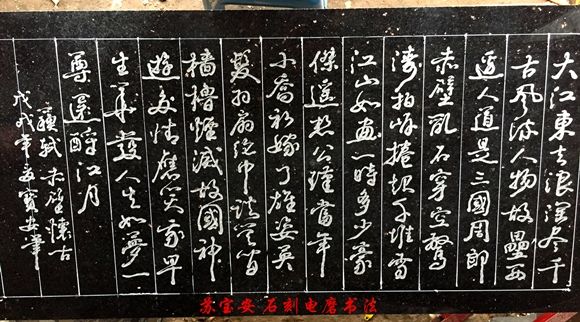 大江東去浪淘尽千
古風流人物故壘西
邊人道是三國周郎
赤壁乱石穿空驚
濤拍岸捲起千堆雪
江山如画一時多少豪
傑遥想公瑾當年
小喬初嫁了雄姿英
髮羽扇纶巾談笑间
檣櫓煙滅故國神
遊多情應笑我早
生華發人生如夢一
尊還酹江月
蘇軾 赤壁懷古
戊戌年苏寶安筆
苏宝安石刻电磨书法